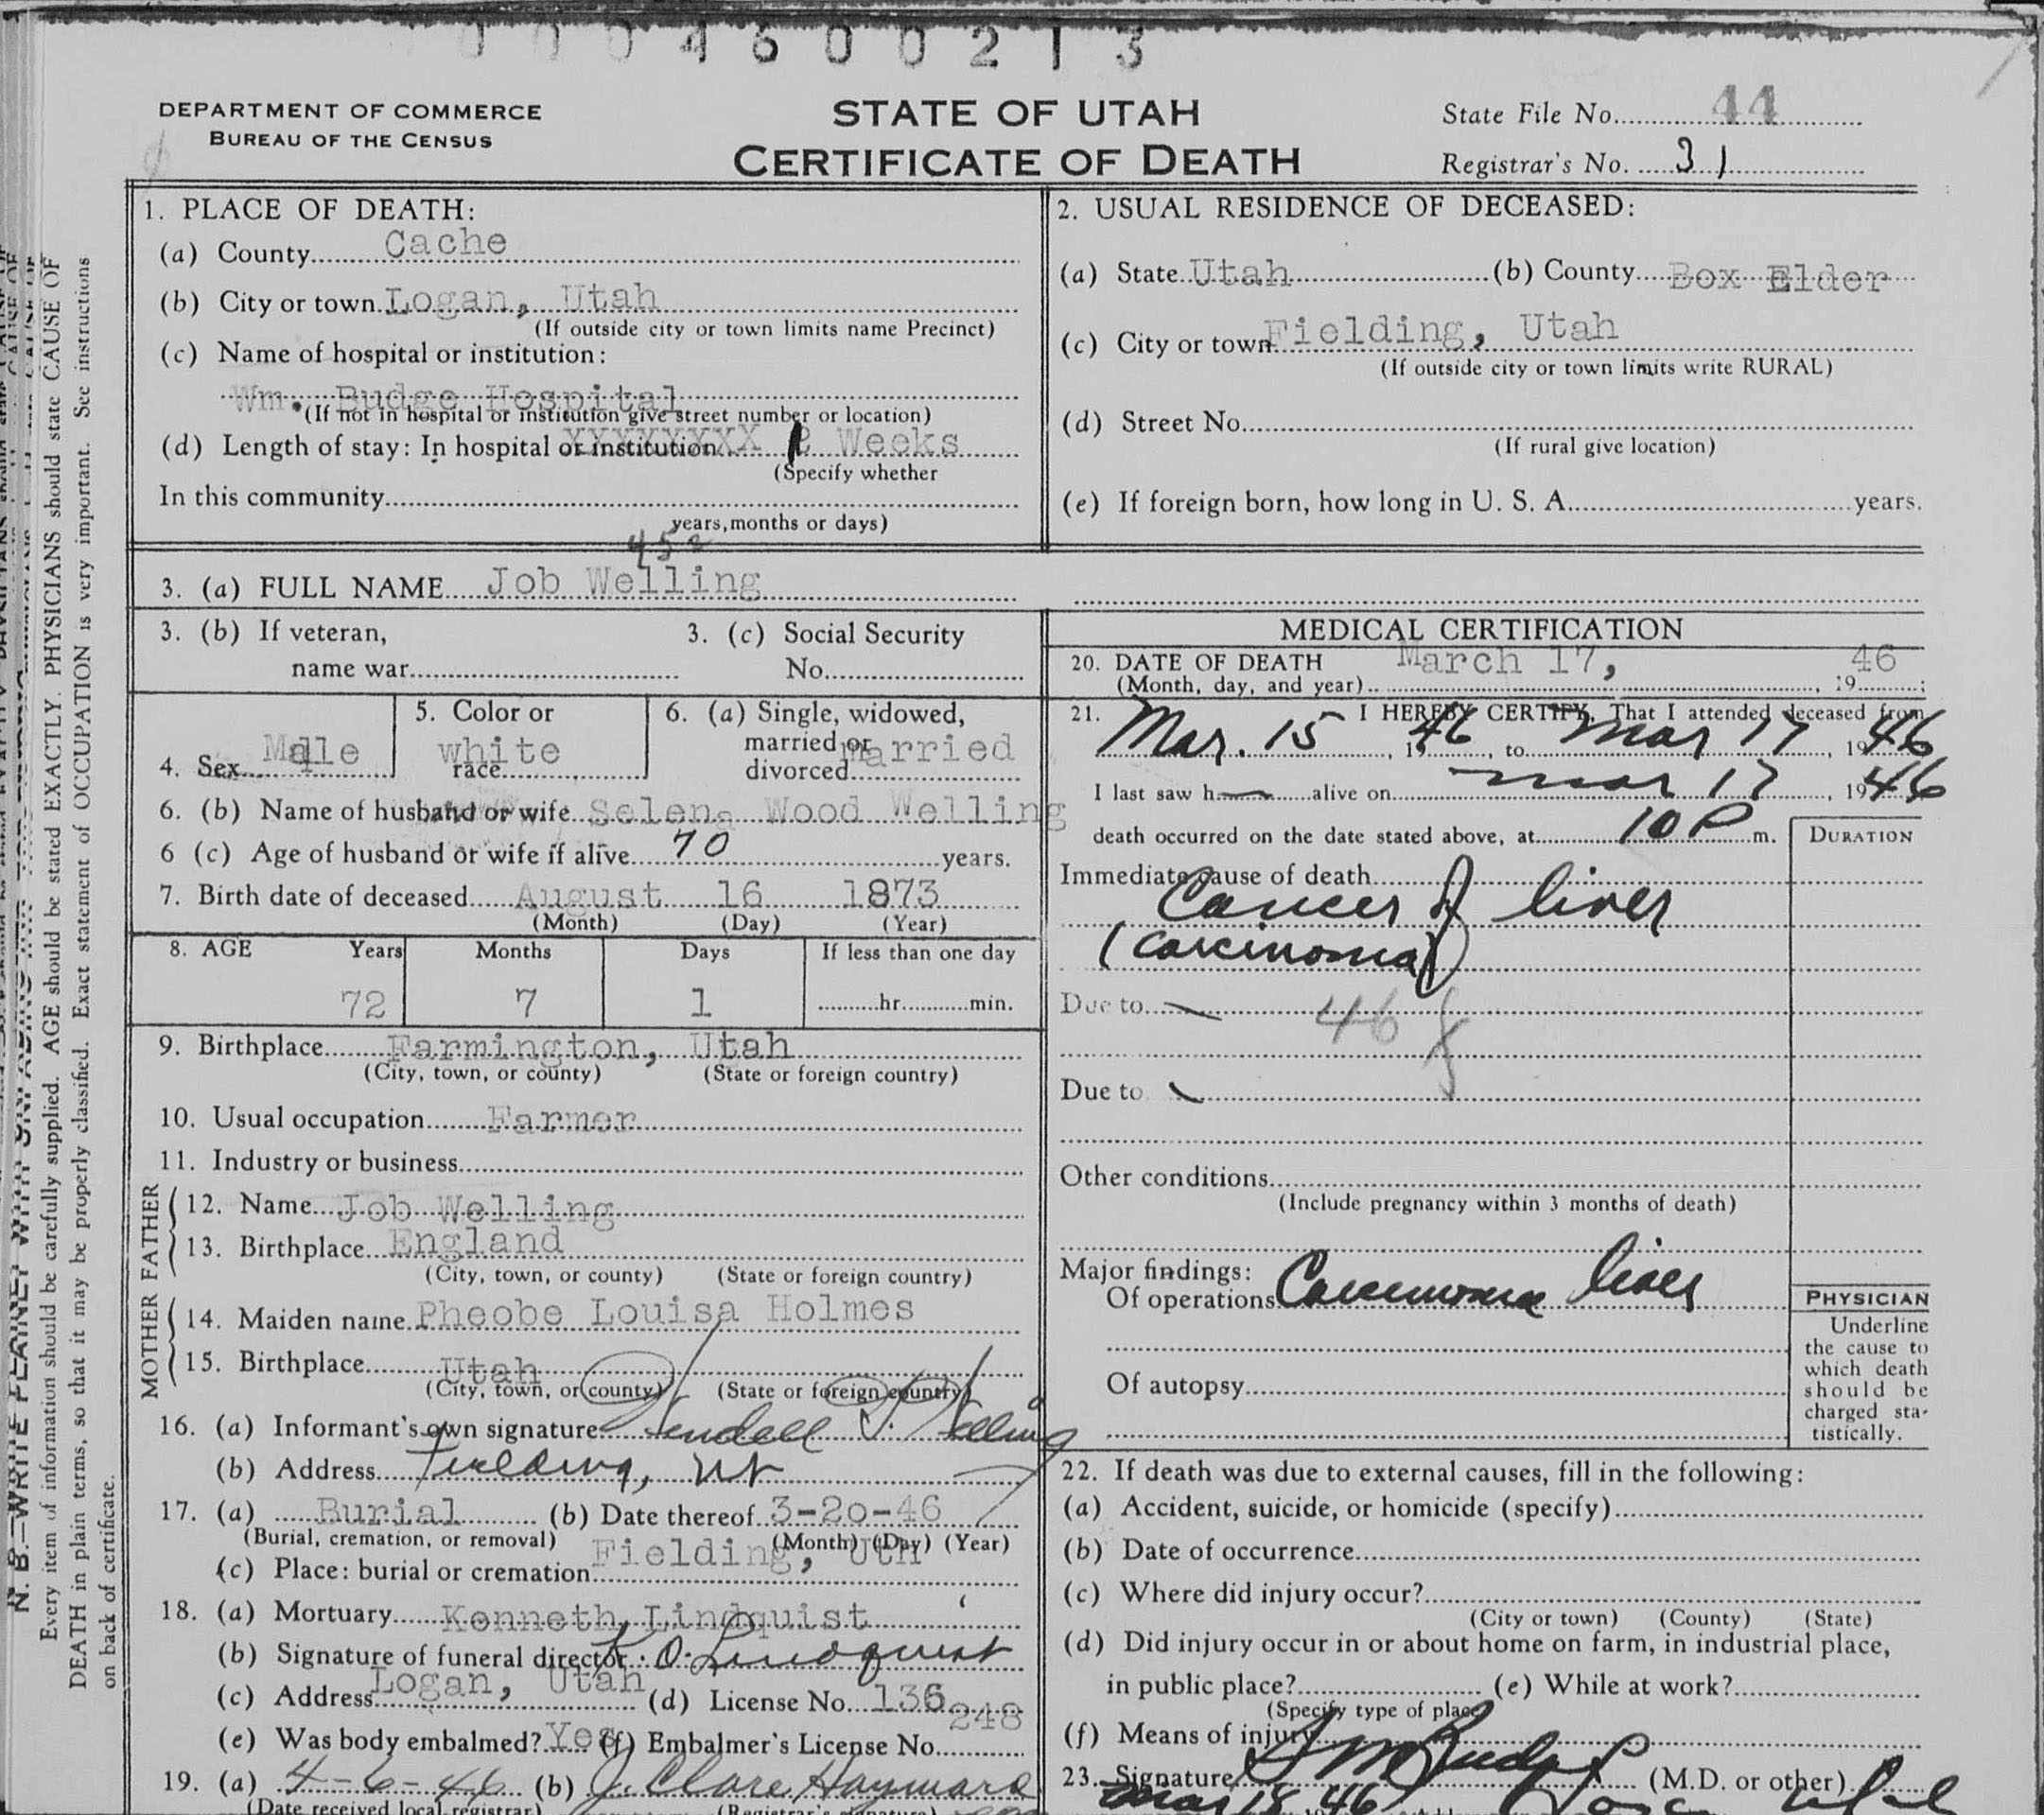 0004600213
DEPARTMENT OF COMMERCE
BUREAU OF THE CENSUS
STATE OF UTAH
CERTIFICATE OF DEATH
State File No. 44
Registrar's No. 31
1. PLACE OF DEATH:
(a) County Cache
(b) City or town Logan, Utah
(If outside city or town limits name Precinct)
(c) Name of hospital or institution:
Wm. Budge Hospital
(If not in hospital or institution give street number or location)
(d) Length of stay: In hospital or institution XXXXXXXX Weeks
(Specify whether
In this community
years, months or days)
2. USUAL RESIDENCE OF DECEASED:
(a) State Utah (b) County Box Elder
(c) City or town Fielding, Utah
(If outside city or town limits write RURAL)
(d) Street No.
(If rural give location)
(e) If foreign born, how long in U. S. A. years.
452
3. (a) FULL NAME Job Welling
3. (b) If veteran,
name war
3. (c) Social Security
No.
4. Sex Male
5. Color or
race white
6. (a) Single, widowed,
married or
divorced married
6. (b) Name of husband or wife Selena Wood Welling
6 (c) Age of husband or wife if alive 70 years.
7. Birth date of deceased August 16 1873
(Month) (Day) (Year)
8. AGE Years Months Days If less than one day
72 7 1 hr. min.
9. Birthplace Farmington, Utah
(City, town, or county) (State or foreign country)
10. Usual occupation Farmer
11. Industry or business
FATHER
12. Name Job Welling
13. Birthplace England
(City, town, or county) (State or foreign country)
MOTHER
14. Maiden name Pheobe Louisa Holmes
15. Birthplace Utah
(City, town, or county) (State or foreign country)
16. (a) Informant's own signature Wendell Welling
(b) Address Fielding, Ut
17. (a) Burial (b) Date thereof 3-20-46
(Burial, cremation, or removal) (Month) (Day) (Year)
(c) Place: burial or cremation Fielding, Uth
18. (a) Mortuary Kenneth Lindquist
(b) Signature of funeral director K. O. Lindquist
(c) Address Logan, Utah (d) License No. 136
248
(e) Was body embalmed? Yes (f) Embalmer's License No.
19. (a) 4-6-46 (b) J. Clare Hayward
(Date received local registrar) (Registrar's signature)
MEDICAL CERTIFICATION
20. DATE OF DEATH March 17, 46
(Month, day, and year) , 19 ;
21. I HEREBY CERTIFY, That I attended deceased from
Mar. 15, 1946, to Mar 17, 1946
I last saw h alive on Mar 17, 1946
death occurred on the date stated above, at 10 P m.
DURATION
Immediate cause of death
Cancer of liver
(carcinoma)
Due to
46 f
Due to
Other conditions
(Include pregnancy within 3 months of death)
Major findings:
Of operations Carcinoma liver
Of autopsy
PHYSICIAN
Underline
the cause to
which death
should be
charged sta-
tistically.
22. If death was due to external causes, fill in the following:
(a) Accident, suicide, or homicide (specify)
(b) Date of occurrence
(c) Where did injury occur?
(City or town) (County) (State)
(d) Did injury occur in or about home on farm, in industrial place,
in public place? (e) While at work?
(Specify type of place)
(f) Means of injury
23. Signature S M Budge (M.D. or other)
Mar 18 46
N. B.—WRITE PLAINLY WITH UNFADING INK
Every item of information should be carefully supplied. AGE should be stated EXACTLY. PHYSICIANS should state CAUSE OF
DEATH in plain terms, so that it may be properly classified. Exact statement of OCCUPATION is very important. See instructions
on back of certificate.